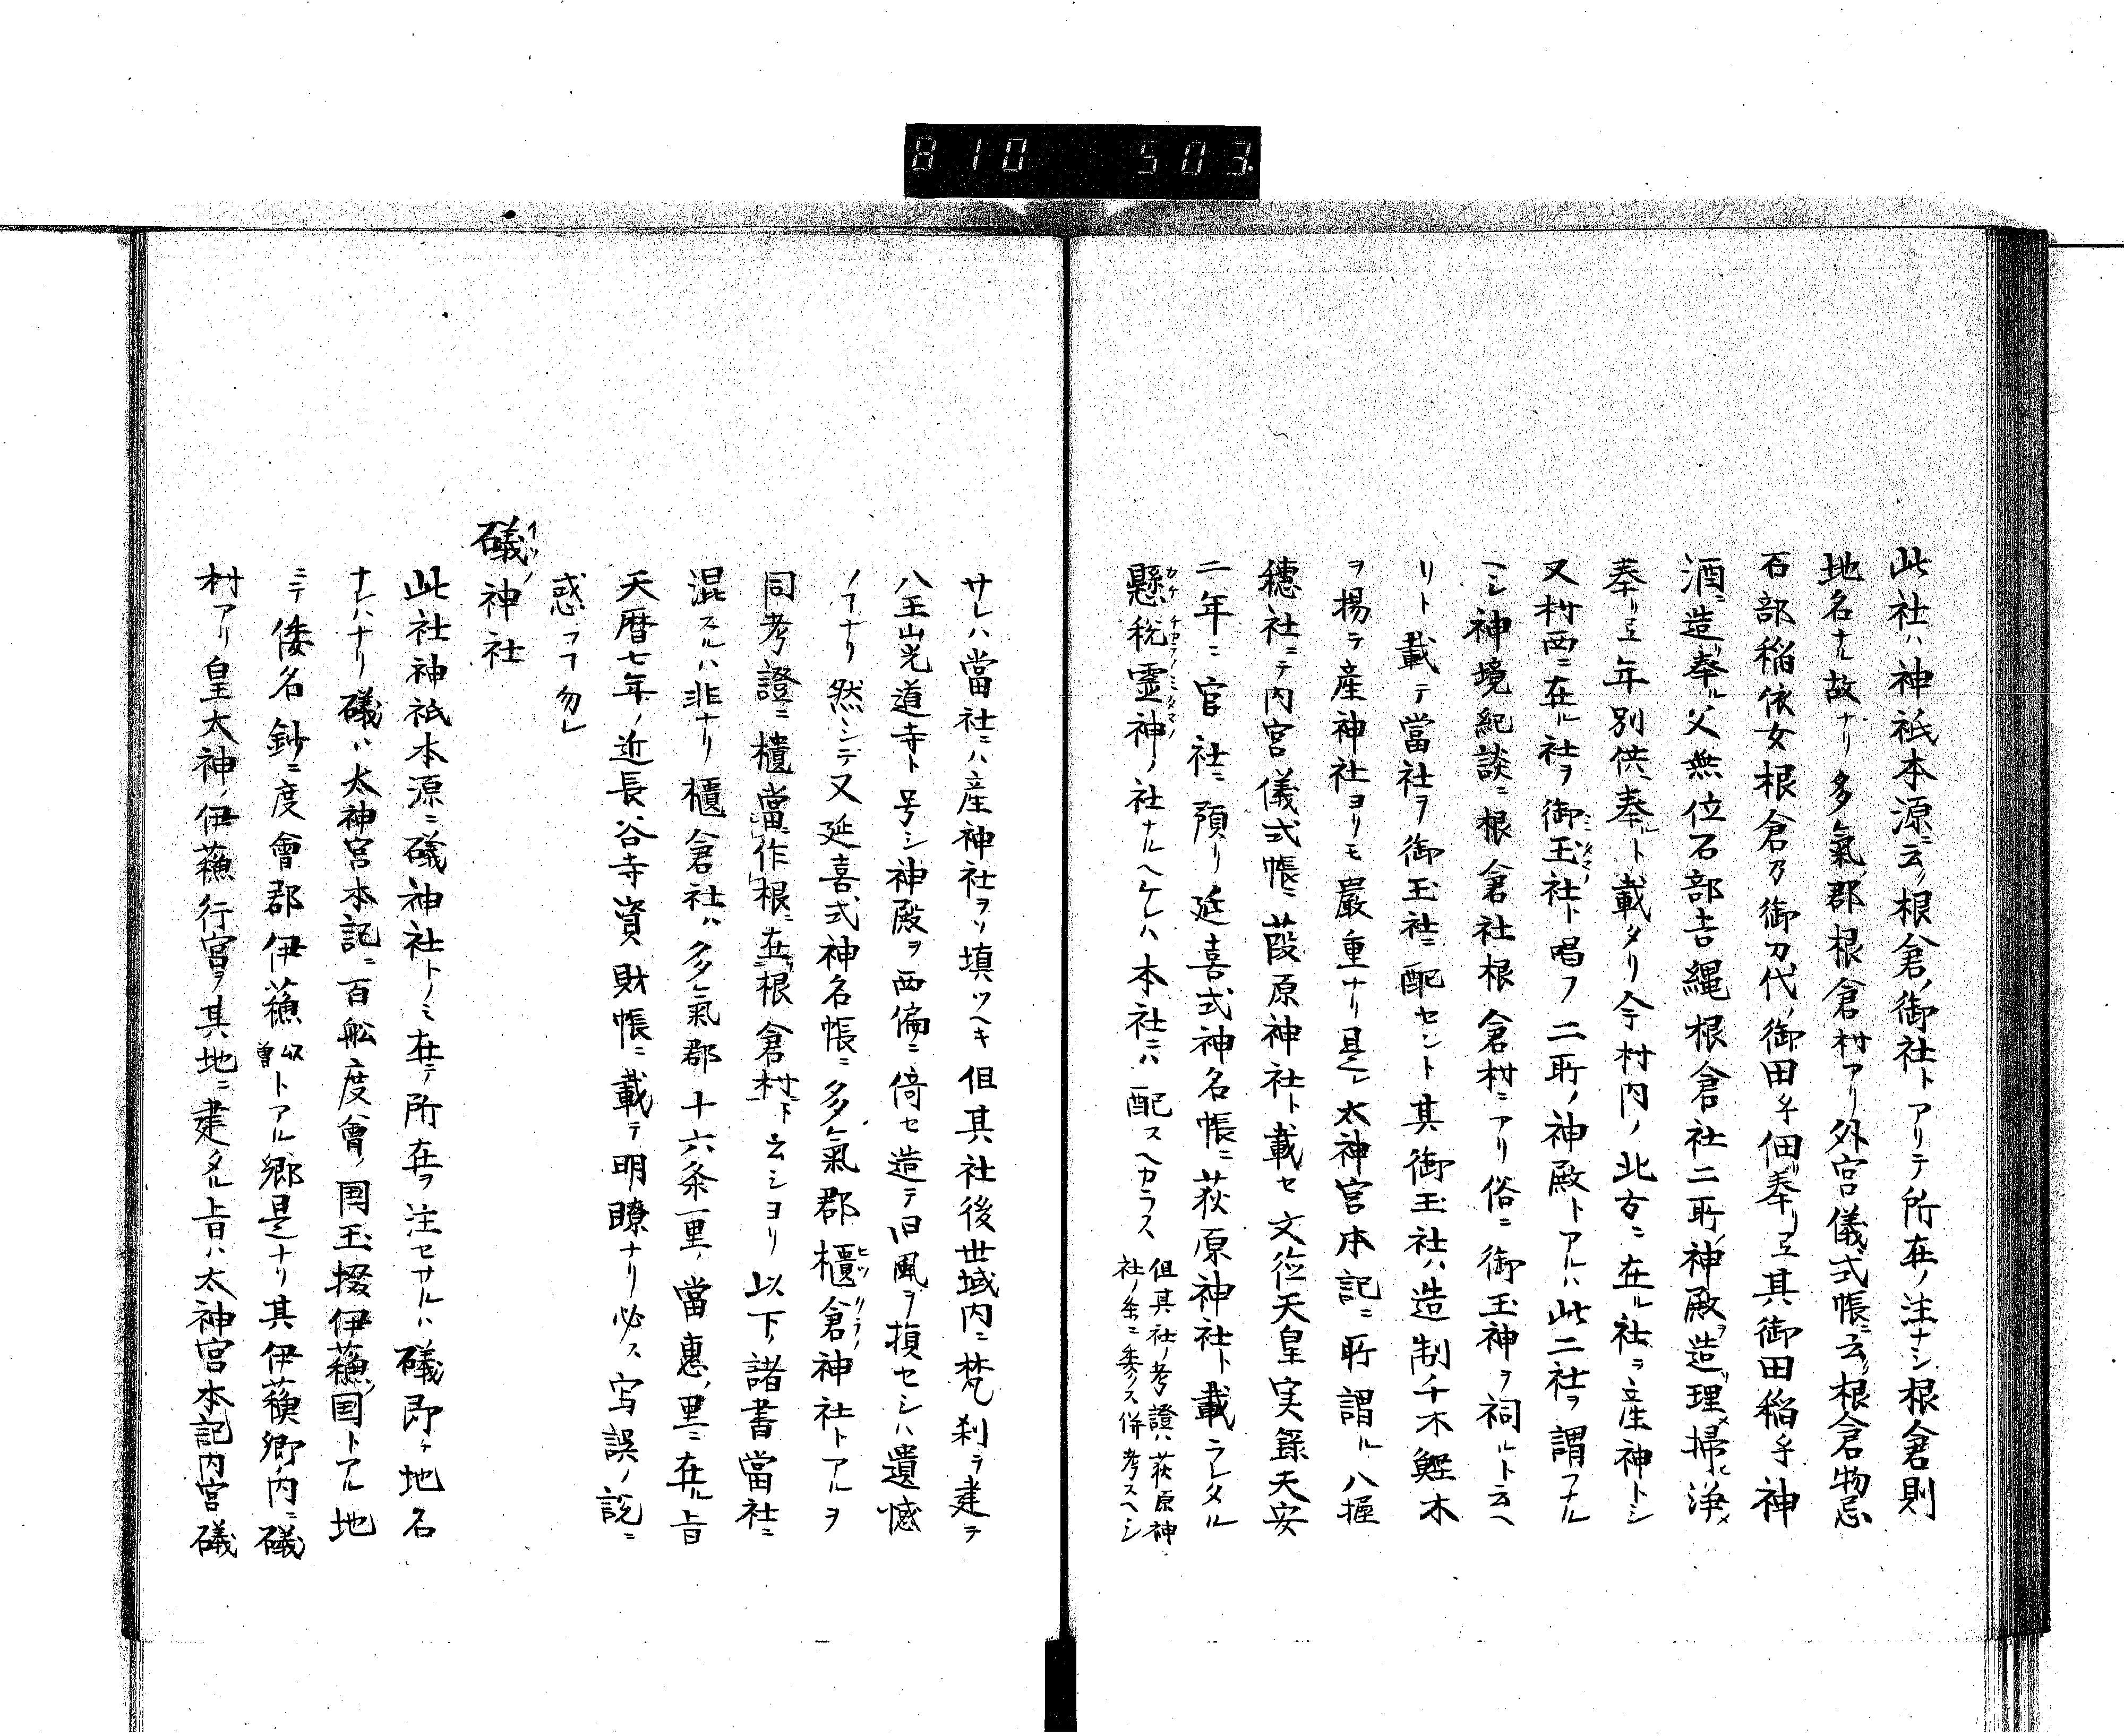 810 503.
此社ハ神祇本源ニ云ク根倉ノ御社トアリテ所在ノ注ナシ根倉則
地名ナル故ナリ多氣郡根倉村アリ外宮儀式帳ニ云ク根倉物忌
石部稲依女根倉乃御刀代ノ御田乎佃奉リ弖其御田稲乎神
酒ニ造奉ル父無位石部吉縄根倉社二所ノ神殿ヲ造理掃浄メ
奉リ弖年別供奉ルト載タリ今村内ノ北方ニ在ル社ヲ産神トシ
又村西ニ在ル社ヲ御玉社ト唱フ二所ノ神殿トアルハ此二社ヲ謂フナル
ヘシ神境紀談ニ根倉社根倉村ニアリ俗ニ御玉神ヲ祠ルト云ヘ
リト載テ當社ヲ御玉社ニ配セント其御玉社ハ造制千木鰹木
ヲ揚テ産神社ヨリモ嚴重ナリ是レ太神宮本記ニ所謂ル八握
穗社ニテ内宮儀式帳ニ葭原神社ト載セ文徳天皇実録天安
二年ニ官社ニ預リ延喜式神名帳ニ荻原神社ト載ラレタル
懸税靈神ノ社ナルヘケレハ本社ニハ配スヘカラス但其社ノ考證ハ荻原神
社ノ条ニ委クス併考スヘシ
サレハ當社ニハ産神社ヲソ填ツヘキ但其社後世域内ニ梵刹ヲ建テ
八王山光道寺ト号シ神殿ヲ西偏ニ倚セ造テ旧風ヲ損セシハ遺憾
ノコナリ然シテ又延喜式神名帳ニ多氣郡櫃倉神社トアルヲ
同考證ニ櫃當作根在根倉村ト云シヨリ以下ノ諸書當社ニ
混スルハ非ナリ櫃倉社ハ多氣郡十六条一里ノ當惠ノ里ニ在ル旨
天暦七年ノ近長谷寺資財帳ニ載テ明瞭ナリ必ス写誤ノ説ニ
惑フコ勿レ
礒神社
此社神祇本源ニ礒神社トノミ在テ所在ヲ注セサルハ礒即チ地名
ナレハナリ礒ハ太神宮本記ニ百舩度會ノ国玉掇伊蘓国トアル地
ニテ倭名鈔ニ度會郡伊蘓以曽トアル郷是ナリ其伊蘓郷ノ内ニ礒
村アリ皇太神ノ伊蘓行宮ヲ其地ニ建タル旨ハ太神宮本記内宮礒